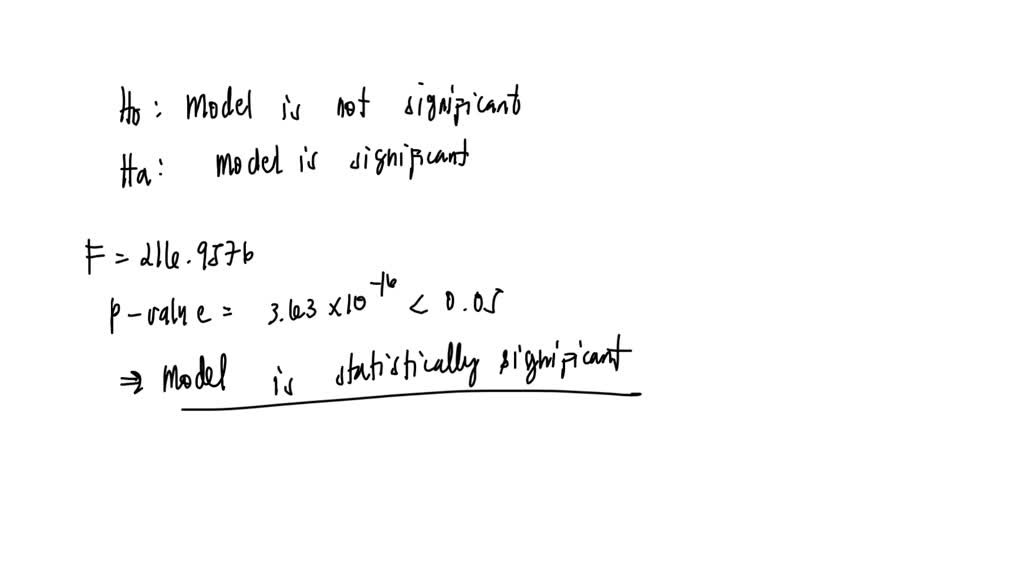 Ho: Model is not significant
Ha: model is significant
F = 216.9576
p-value = 3.63 × 10^-16 < 0.05
⇒ Model is statistically significant